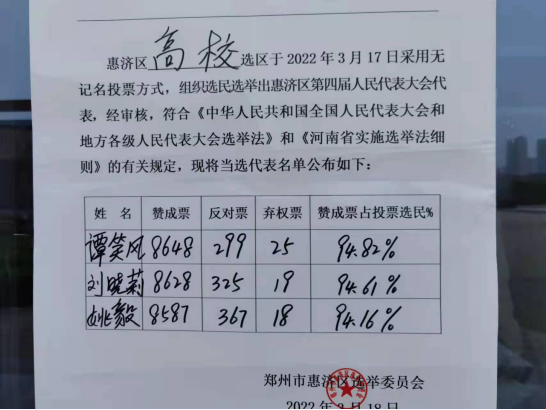 惠济区 高校 选区于 2022 年 3 月 17 日采用无
记名投票方式，组织选民选举出惠济区第四届人民代表大会代
表，经审核，符合《中华人民共和国全国人民代表大会和
地方各级人民代表大会选举法》和《河南省实施选举法细
则》的有关规定，现将当选代表名单公布如下：
姓 名 赞成票 反对票 弃权票 赞成票占投票选民%
谭笑风 8648 299 25 94.82%
刘晓莉 8628 325 19 94.61%
姚毅 8587 367 18 94.16%
郑州市惠济区选举委员会
2022 年 3 月 18 日